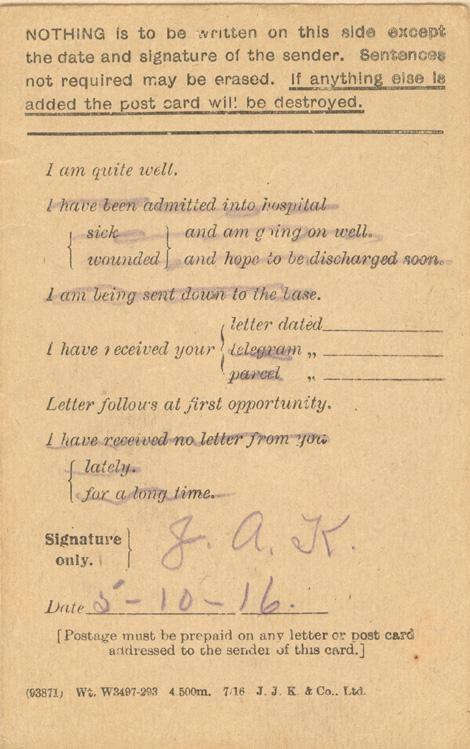 NOTHING is to be written on this side except
the date and signature of the sender. Sentences
not required may be erased. If anything else is
added the post card will be destroyed.
I am quite well.
I have been admitted into hospital
{ sick } and am going on well.
{ wounded } and hope to be discharged soon.
I am being sent down to the base.
I have received your { letter dated
telegram „
parcel „
Letter follows at first opportunity.
I have received no letter from you
{ lately.
for a long time.
Signature only. } J. A. K.
Date 5-10-16.
[Postage must be prepaid on any letter or post card
addressed to the sender of this card.]
(93871) Wt. W3497-293 4,500m. 7/16 J. J. K. & Co., Ltd.